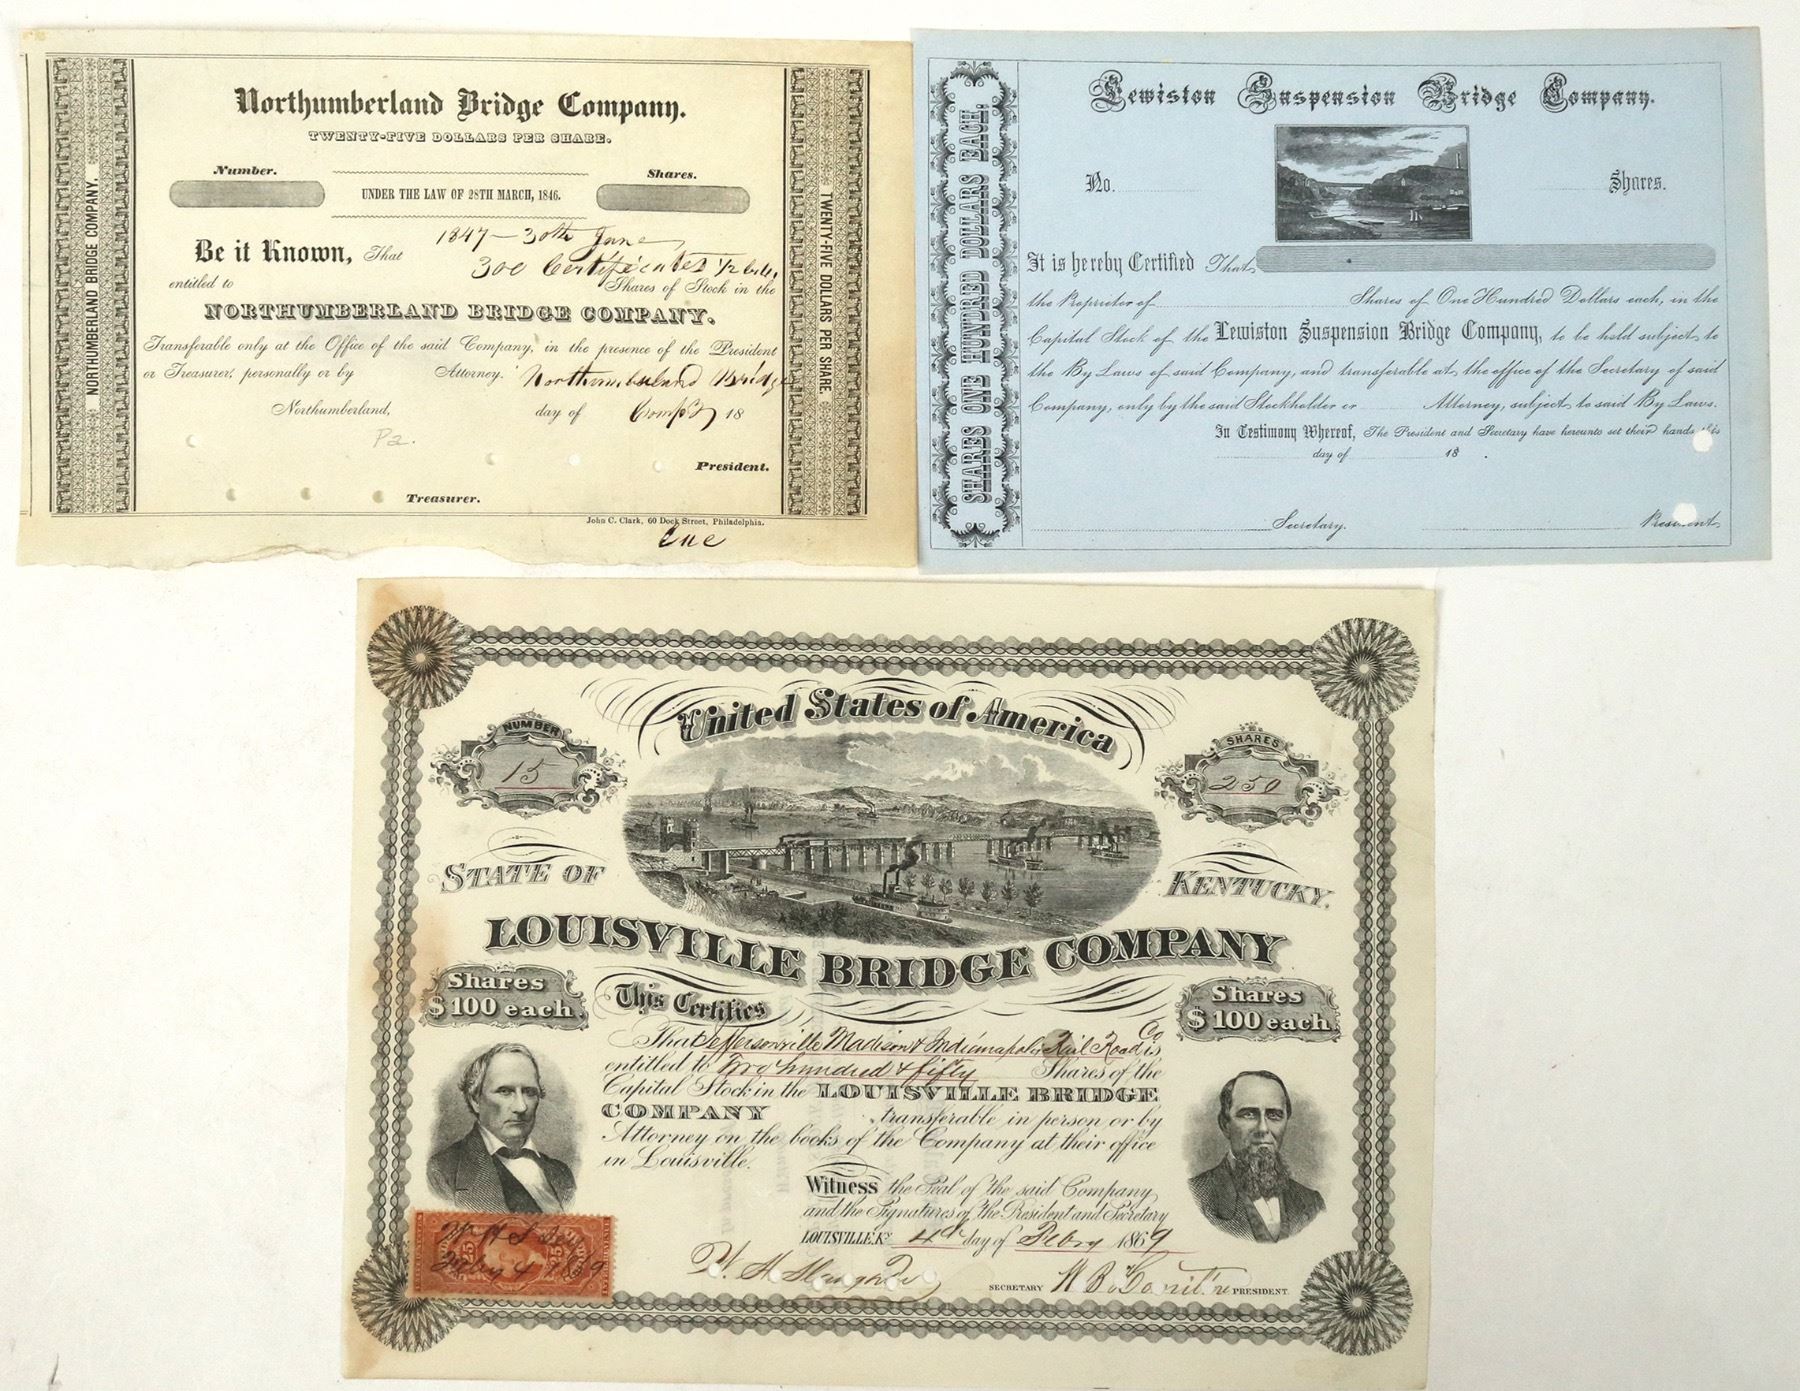 Northumberland Bridge Company.
TWENTY-FIVE DOLLARS PER SHARE.
Number.
UNDER THE LAW OF 28TH MARCH, 1846.
Shares.
Be it Known, That 1847 - 30th June
300 Certificates 1/2
entitled to Shares of Stock in the
NORTHUMBERLAND BRIDGE COMPANY.
Transferable only at the Office of the said Company, in the presence of the President
or Treasurer, personally or by Attorney. Northumberland Bridge
Northumberland, day of Compy 18
Pa.
President.
Treasurer.
John C. Clark, 60 Dock Street, Philadelphia.
NORTHUMBERLAND BRIDGE COMPANY.
TWENTY-FIVE DOLLARS PER SHARE.
Lewiston Suspension Bridge Company.
No. Shares.
It is hereby Certified That
the Proprietor of Shares of One Hundred Dollars each, in the
Capital Stock of the Lewiston Suspension Bridge Company, to be held subject to
the By Laws of said Company, and transferable at the office of the Secretary of said
Company, only by the said Stockholder or Attorney, subject to said By Laws.
In Testimony Whereof, The President and Secretary have hereunto set their hands this
day of 18 .
Secretary. President.
SHARES ONE HUNDRED DOLLARS EACH.
United States of America
NUMBER
15
SHARES
250
STATE OF KENTUCKY.
LOUISVILLE BRIDGE COMPANY
Shares
$100 each.
Shares
$100 each.
This Certifies
That Jeffersonville Madison & Indianapolis Rail Road Co is
entitled to Two hundred & fifty Shares of the
Capital Stock in the LOUISVILLE BRIDGE
COMPANY transferable in person or by
Attorney on the books of the Company at their office
in Louisville.
Witness the Seal of the said Company
and the Signatures of the President and Secretary
LOUISVILLE, Ky 4th day of Feby 1869
SECRETARY PRESIDENT.
25 25
Feby 4 1869